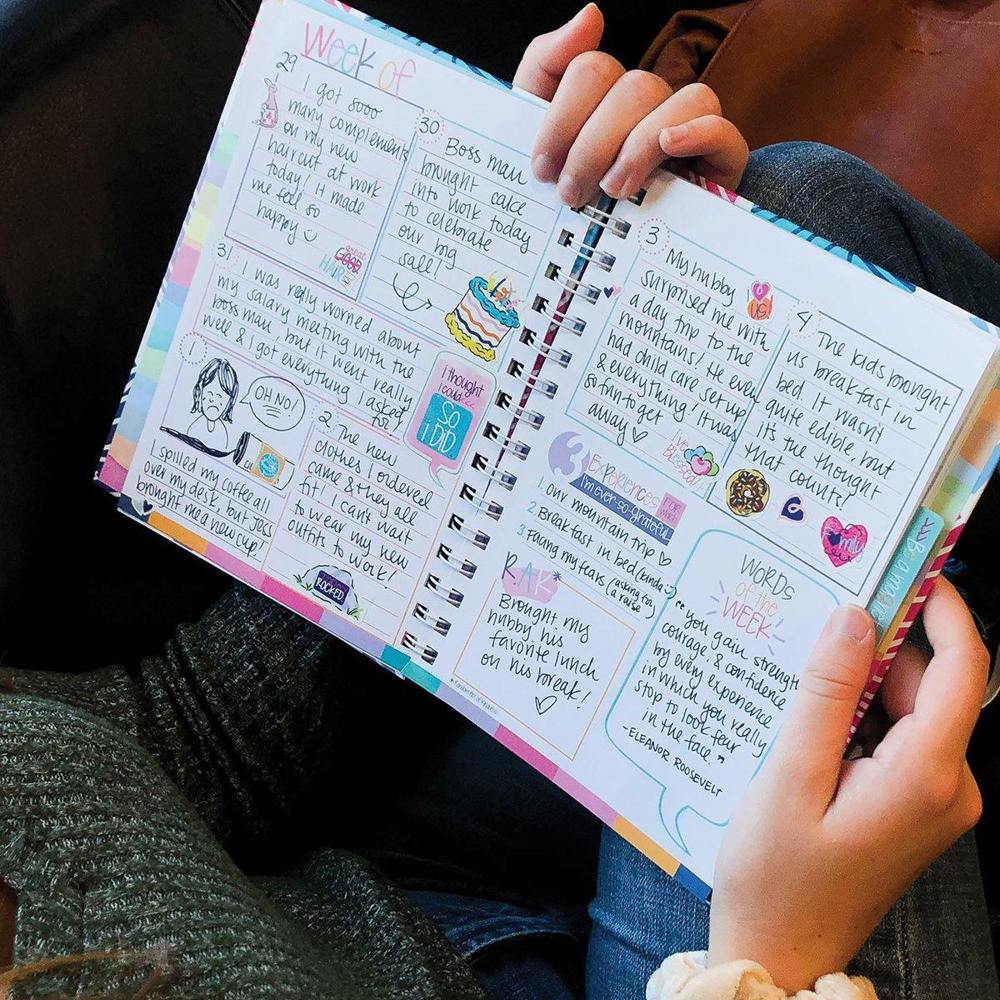 Week of
29
I got sooo
many complements
on my new
haircut at work
today! It made
me feel so
happy
great
GOOD
HAIR
30
Boss man
brought cake
into work today
to celebrate
our big
sale!
31
I was really worried about
my salary meeting with the
boss man, but it went really
well & I got everything I asked
for!
I thought
I could...
SO
I DID
1
OH NO!
I spilled my coffee all
over my desk, but Jess
brought me a new cup!
2
The new
clothes I ordered
came & they all
fit! I can't wait
to wear my new
outfits to work!
ROCKED
3
My hubby
surprised me with
a day trip to the
mountains! He even
had child care set up
& everything! It was
so fun to get
away
US
Blessed
4
The kids brought
us breakfast in
bed. It wasn't
quite edible, but
it's the thought
that counts!
Family
3 Experiences
I'm ever-so-grateful
1. our mountain trip
2. Breakfast in bed (kinda)
3 Facing my fears (asking for
a raise)
RAK*
Brought my
hubby his
favorite lunch
on his break!
WORDS
of the
WEEK
"You gain strength,
courage, & confidence
by every experience
in which you really
stop to look fear
in the face."
-ELEANOR ROOSEVELT